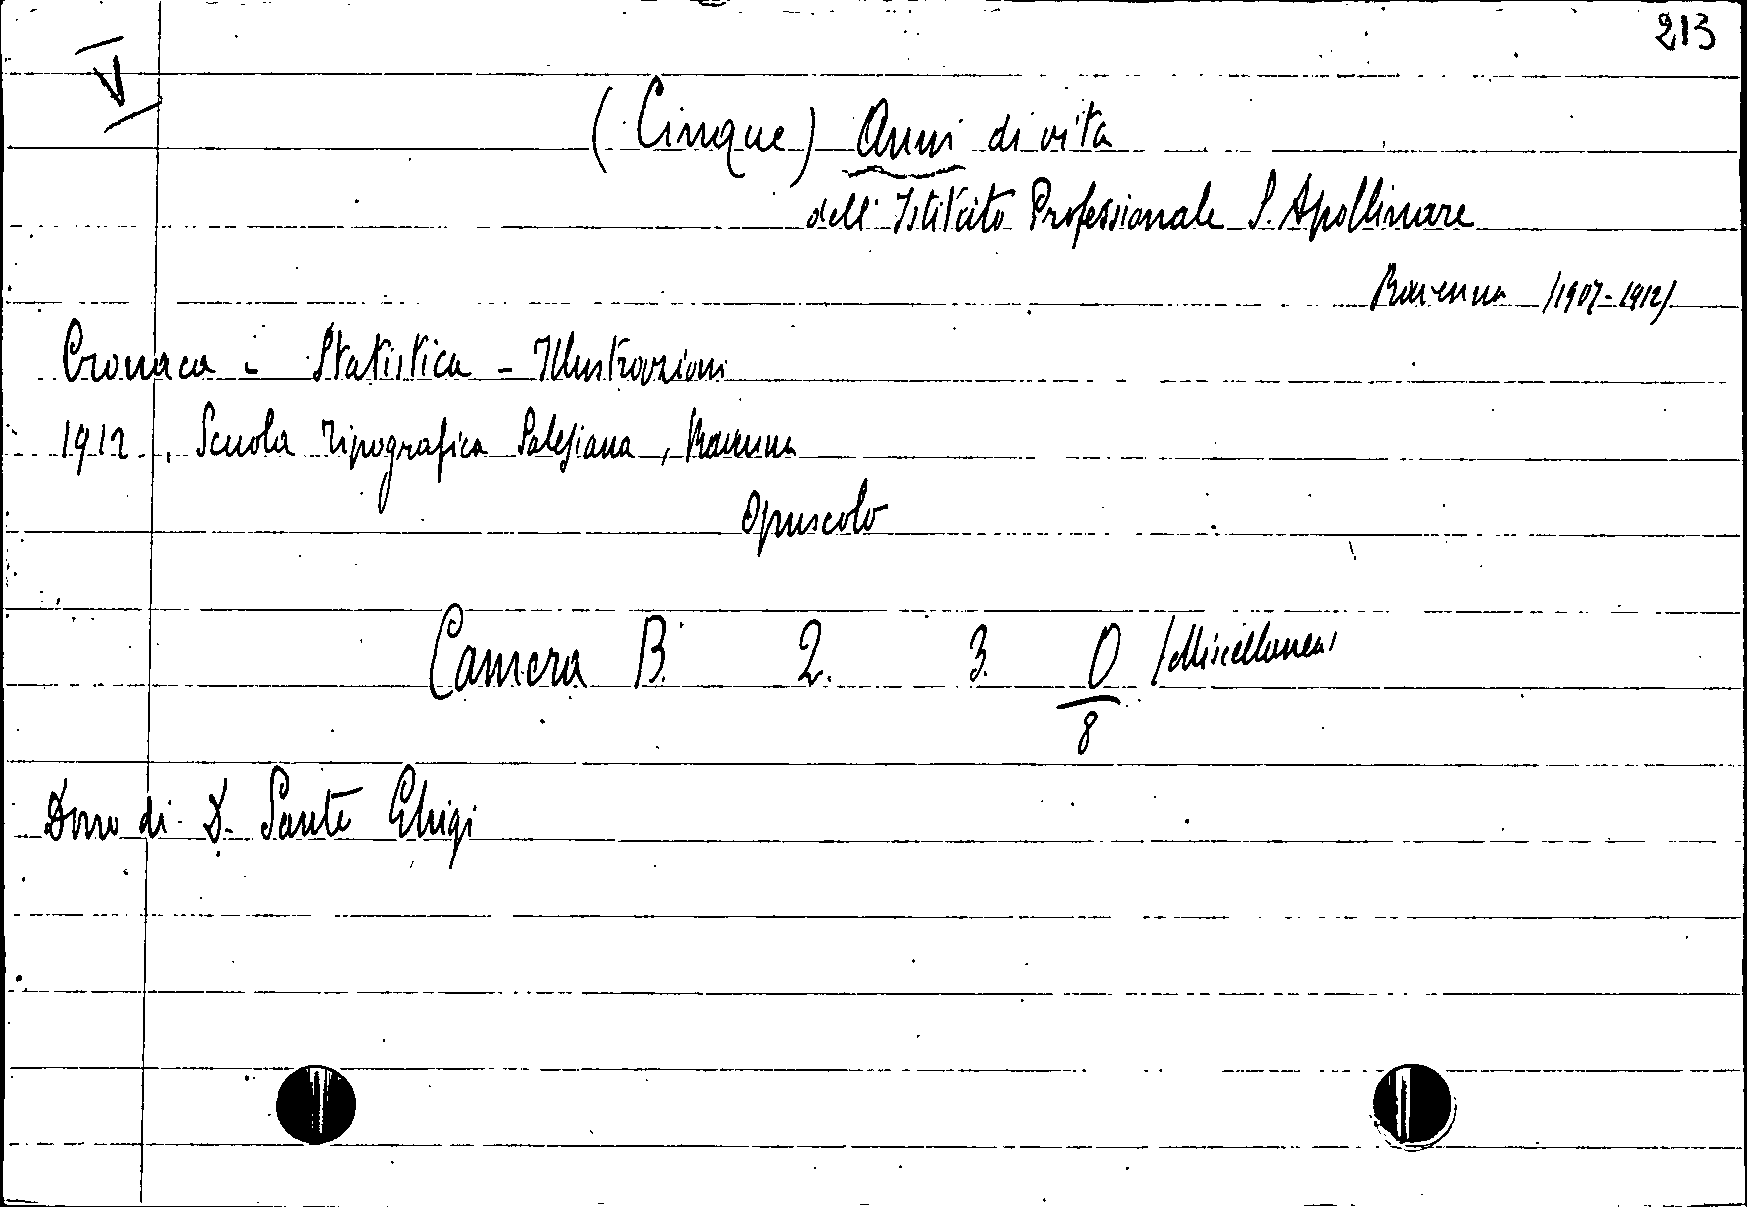 213
V
(Cinque) Anni di vita
dell'Istituto Professionale S. Apollinare
Ravenna (1907-1912)
Cronaca - Statistica - Illustrazioni
1912, Scuola Tipografica Salesiana, Ravenna
Opuscolo
Camera B. 2. 3. O (Miscellanea)
8
Dono di D. Sante Ghigi